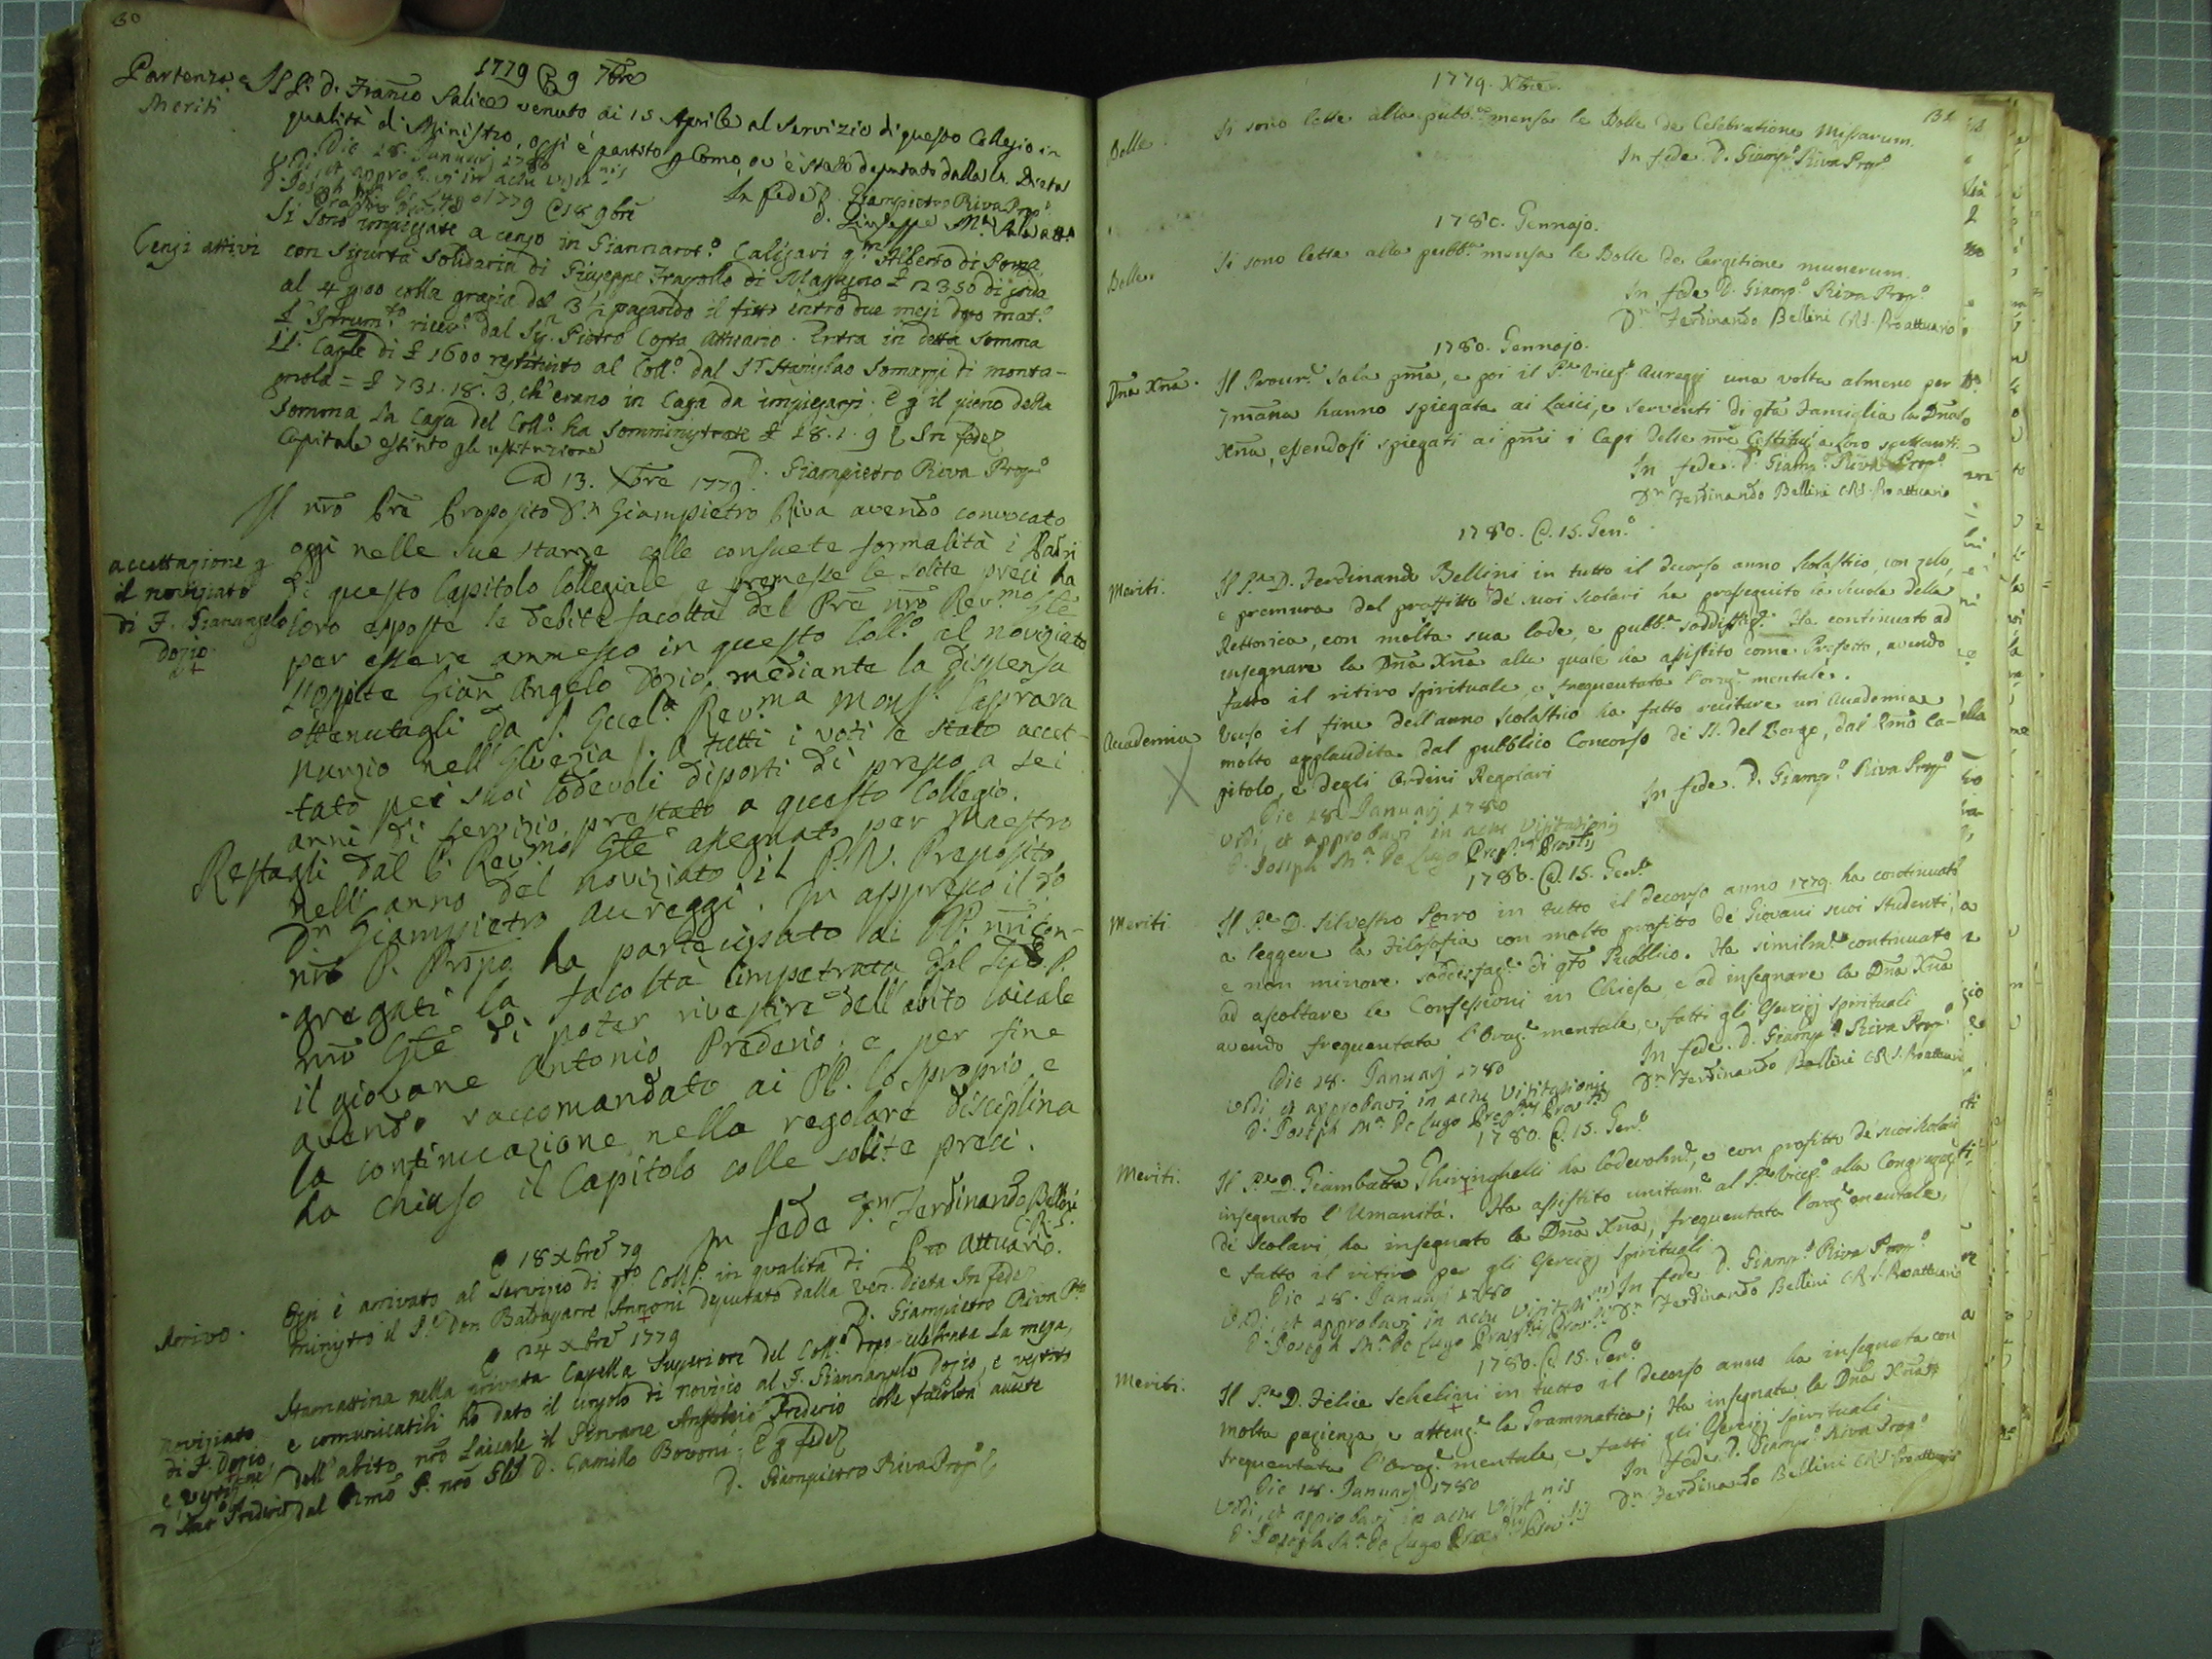 30
1779 @ 9 7bre
Partenza e Meriti
Il P. D. Franco Salice venuto ai 15 Aprile al Servizio di questo Collegio in
qualità di Ministro, oggi è partito p Como, ov'è stato deputato dalla Dieta
Die 28. Januarj 1780
In fede D. Giampietro Riva Prop.o
1779 @ 18 9bre
Censi attivi
Si sono impiegate a censo in Giannant.o Caligari q.m Alberto di
con sigurtà solidaria di Giuseppe di £ 2350 di
al 4 p 100 colla grazia del 3 1/2 pagando il fitto entro due mesi dopo mat.o
L'Istrum.to ricev.o dal Sig. Pietro Costa Attuario. Entra in detta somma
Cap.le di £ 1600 restituito al Coll.o dal Sr Stanislao Somazzi di Monta-
gnola = £ 731.18.3, ch'erano in Cassa da impiegarsi. E p il pieno della
somma la Cassa del Coll.o ha somministrate £ 18.1.9 In fede
Capitale estinto
D. Giampietro Riva Prop.o
@ 13. Xbre 1779.
Il nro Pre Preposito Dn Giampietro Riva avendo convocato
oggi nelle sue stanze colle consuete formalità i Padri
accettazione p il noviziato di F. Gianangelo Dozio
di questo Capitolo Collegiale e premesse le solite preci ha
loro esposte le debite facoltà del Pre nro Rev.mo Gle
per essere ammesso in questo Coll.o al noviziato
l'Ospite Gian Angelo Dozio, mediante la dispensa
ottenutagli da S. Eccel.a Rev.ma Mons.r Caprara
Nunzio nell'Elvezia. A tutti i voti è stato accet-
tato pei suoi lodevoli diporti di presso a sei
anni di servizio prestato a questo Collegio.
Restagli dal P. Rev.mo Gle assegnato per Maestro
nell'anno del noviziato il P. V. Preposito
Dn Giampietro Aureggi. In appresso il do
nro P. Prepo ha partecipato ai PP. nri con-
gregati la facoltà impetrata dal P.
nro Gle di poter rivestire dell'abito laicale
il giovane Antonio Prederio; e per fine
avendo raccomandato ai PP. lo sproprio, e
la continuazione nella regolare disciplina
ha chiuso il Capitolo colle solite preci.
In fede Dn Ferdinando Bellini C.R.S.
Pro Attuario.
@ 18 Xbre 79
Arrivo.
Oggi è arrivato al servizio di qto Coll.o in qualità di
Ministro il P. Don Baldassarre Annoni deputato dalla Ven. Dieta In fede
D. Giampietro Riva Pto
@ 24 Xbre 1779
Noviziato di F. Dozio
Stamattina nella privata Capella Superiore del Coll.o dopo celebrata la messa,
e comunicatili ho dato il cingolo di novizio al F. Gianangelo Dozio, e vestito
dell'abito nro Laicale il Giovane Antonio Prederio colle facoltà avute
dal Rmo P. nro Gle D. Camillo Bovoni. E p fede
D. Giampietro Riva Prop.o
1779. Xbre.
131
Bolle.
Si sono lette alla pubb.a mensa le Bolle de Celebratione Missarum.
In fede. D. Giamp.o Riva Prop.o
1780. Gennajo.
Bolle.
Si sono lette alla pubb.a mensa le Bolle de Largitione munerum.
In fede D. Giamp.o Riva Prop.o
Dn Ferdinando Bellini CRS. Proattuario
1780. Gennajo.
Dna Xna.
Il Procur.e Sala pma, e poi il P.re Vicep.o Aureggi una volta almeno per
7mana hanno spiegata ai Laici, e serventi di qta Famiglia la Dna
Xna, essendosi spiegati ai pmi i Capi delle nre Costituz.i a loro spettanti.
In fede. D. Giamp.o Riva Prop.o
Dn Ferdinando Bellini CRS. Proattuario
1780. @. 15. Gen.o
Meriti.
Il P.re D. Ferdinando Bellini in tutto il decorso anno scolastico, con zelo,
e premura del proffitto de' suoi scolari ha proseguito la scuola della
Rettorica, con molta sua lode, e pubb.a soddisfaz.e Ha continuato ad
insegnare la Dna Xna alla quale ha assistito come Prefetto, avendo
fatto il ritiro spirituale, e frequentata l'oraz.e mentale.
Accademia
Verso il fine dell'anno scolastico ha fatto recitare un'Accademia
molto applaudita dal pubblico Concorso de' SS. del Borgo, dal Rmo Ca-
pitolo, e degli Ordini Regolari
In fede. D. Giamp.o Riva Prop.o
Die 28 Januarj 1780
Vidi, et approbavi in actu Visitationis
D. Joseph M.a De Lugo Præp.tus Prov.lis
1780. @. 15. Gen.o
Meriti.
Il P.re D. Silvestro Porro in tutto il decorso anno 1779. ha continuato
a leggere la Filosofia con molto profitto de' Giovani suoi studenti,
e non minore soddisfaz.e di qto Pubblico. Ha similm.e continuato
ad ascoltare le Confessioni in Chiesa, e ad insegnare la Dna Xna
avendo frequentata l'Oraz.e mentale, e fatti gli Esercizj spirituali
In fede. D. Giamp.o Riva Prop.o
Die 28. Januarj 1780
Dn Ferdinando Bellini CRS. Proattuario
Vidi, et approbavi in actu Visitationis
D. Joseph M.a De Lugo Præp.tus Prov.lis
1780. @. 15. Gen.o
Meriti.
Il P.re D. Giambatta Ghiringhelli ha lodevolm.e, e con profitto de' suoi scolari
insegnato l'Umanità. Ha assistito unitam.e al P.re Vicep.o alla Congregaz.e
de' Scolari, ha insegnato la Dna Xna, frequentata l'oraz.e mentale,
e fatto il ritiro per gli Esercizj spirituali.
Die 28. Januarj 1780
In fede D. Giamp.o Riva Prop.o
Vidi, et approbavi in actu Visitat.nis
Dn Ferdinando Bellini CRS. Proattuario
D. Joseph M.a De Lugo Præp.tus Prov.lis
1780. @. 15. Gen.o
Meriti.
Il P.re D. Felice Schelini in tutto il decorso anno ha insegnata con
molta pazienza e attenz.e la Grammatica; Ha insegnata la Dna Xna,
frequentata l'Oraz.e mentale, e fatti gli Esercizj spirituali.
In fede. D. Giamp.o Riva Prop.o
Die 28. Januarj 1780
Dn Ferdinando Bellini CRS Proattuario
Vidi, et approbavi in actu Visit.nis
D. Joseph M.a De Lugo Præp.tus Prov.lis